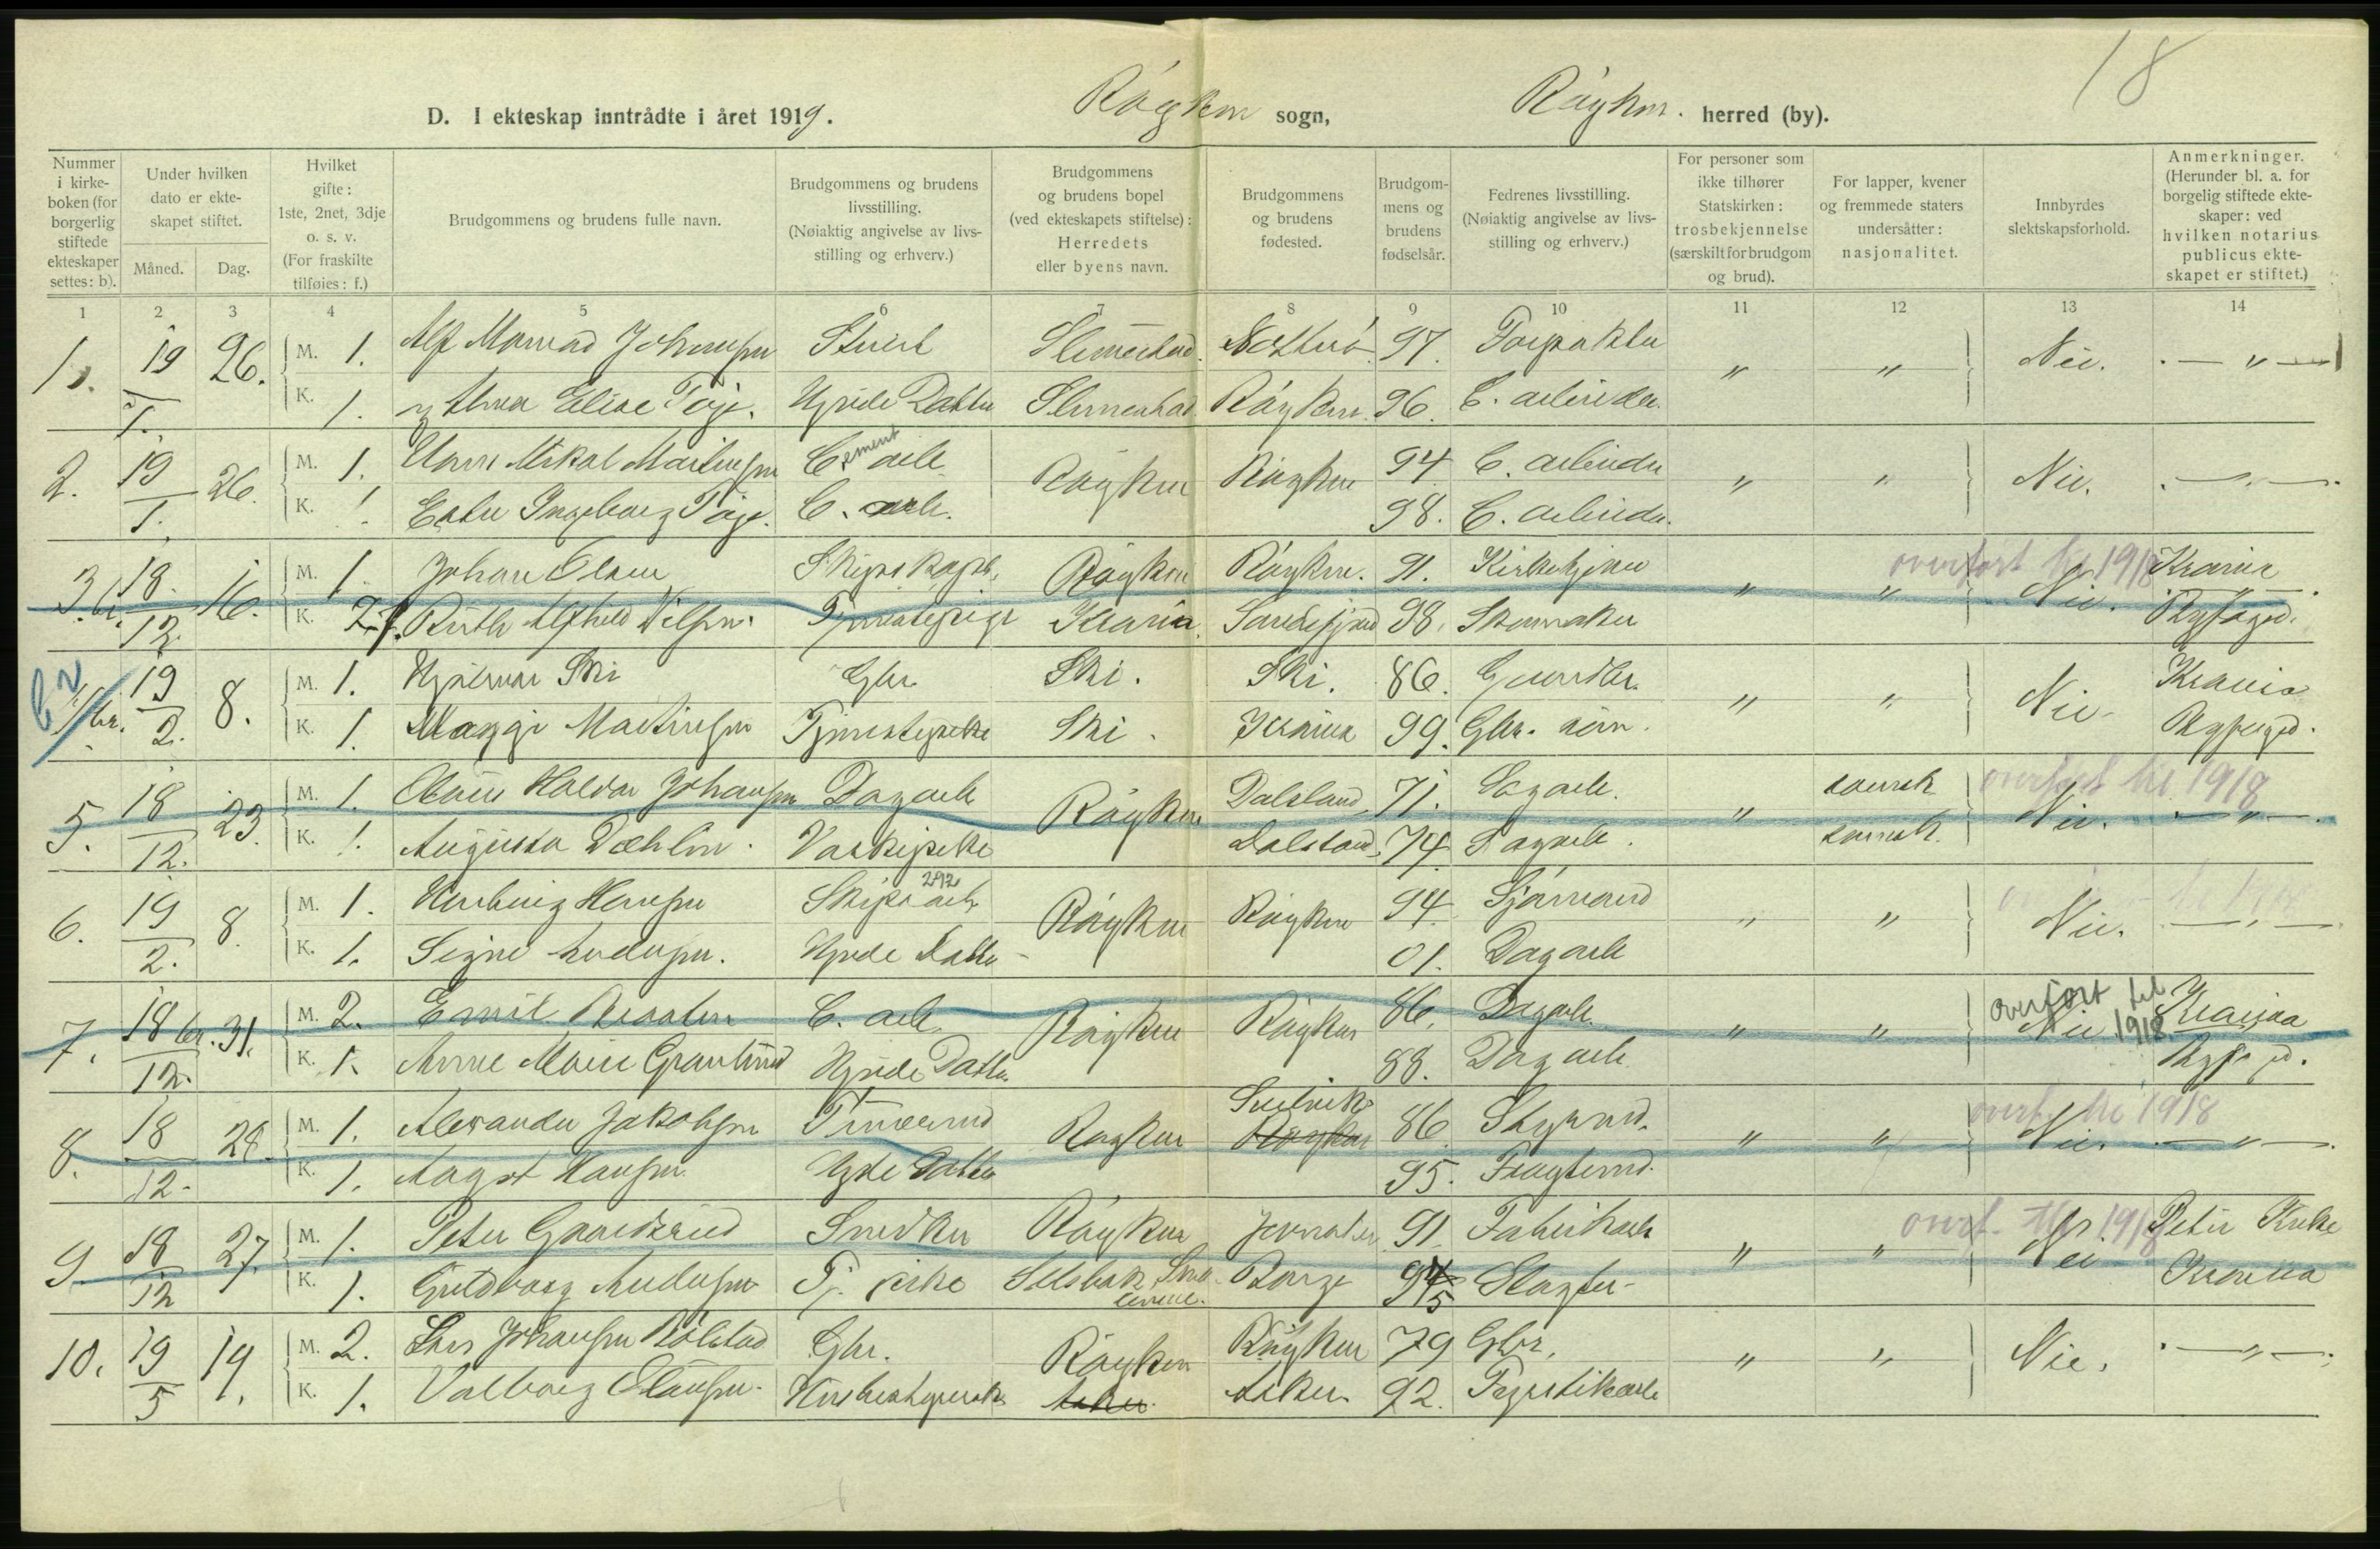 18
D. I ekteskap inntrådte i året 1919. Røyken sogn, Røyken. herred (by).
Nummer i kirke-boken (for borgerlig stiftede ekteskaper settes: b).
Under hvilken dato er ekte-skapet stiftet.
Måned. Dag.
Hvilket gifte: 1ste, 2net, 3dje o. s. v. (For fraskilte tilføies: f.)
Brudgommens og brudens fulle navn.
Brudgommens og brudens livsstilling. (Nøiaktig angivelse av livs-stilling og erhverv.)
Brudgommens og brudens bopel (ved ekteskapets stiftelse): Herredets eller byens navn.
Brudgommens og brudens fødested.
Brudgom-mens og brudens fødselsår.
Fedrenes livsstilling. (Nøiaktig angivelse av livs-stilling og erhverv.)
For personer som ikke tilhører Statskirken: trosbekjennelse (særskilt for brudgom og brud).
For lapper, kvener og fremmede staters undersåtter: nasjonalitet.
Innbyrdes slektskapsforhold.
Anmerkninger. (Herunder bl. a. for borgelig stiftede ekte-skaper: ved hvilken notarius publicus ekte-skapet er stiftet.)
1 2 3 4 5 6 7 8 9 10 11 12 13 14
1. 19/1. 26. M. 1. Alf Johansen Slemmestad. 97. Forpakter " " Nei. - " -
K. 1. Elise Hjvde Datter Slemmestad Røyken. 96. C. arbeider.
2. 19/1. 26. M. 1. Martinsen Cement arb. Røyken Røyken 94. C. arbeider " " Nei. - " -
K. 1. Ester Ingeborg C. arb. 98. C. arbeider.
3. b. 18/12. 16. M. 1. Johan Olsen Røyken Røyken. 91. Kirketjener " " overført til 1918 Nei. Krania
K. Ruth Alfhild Nilsen. Tjenestepige Krania. Sandefjord 98. Skomaker Bygfoged.
19/2. 8. M. 1. Hjalmar Ski Gbr. Ski. Ski. 86. Gaardbr. " " Nei. Krania
K. 1. Maggi Martinsen Tjenestepike Ski. Krania 99. Gbr. Bygfogd.
5. 18/12. 23. M. 1. Halvor Johansen Dagarb. Røyken Dalsland, 71. Sagarb. " svensk overført til 1918 Nei. - " -
K. 1. Augusta Dæhlin. Vaskepike Dalsland, 74. Sagarb. svensk.
6. 19/2. 8. M. 1. Hansen Skipsarb. 292 Røyken Røyken 94. Sjømand " " Nei. - " -
K. 1. Signe Andersen. Hjvde Datter 01. Dagarb.
7. 18/12. b. 31. M. 2. Emil Braaten C. arb. Røyken Røyken 86. Dagarb. " " overført til 1918 Nei Krania
K. 1. Anne Marie Hjvde Datter. 88. Dagarb. Bygfogd.
8. 18/12. 28. M. 1. Alexander Jakobsen Tømmermd Røyken Svelvik Røyken 86. Styrmd. " " overf. til 1918 Nei. - " -
K. 1. Aagot Hansen Hjvde Datter 95. Fragtemd.
9. 18/12 27. M. 1. Peter Snedker Røyken Jevnaker 91. Fabrikarb. " " overf. til 1918 Nei Petri Kirke
K. 1. Guldborg Andersen Tj. pike Selsbak Borge 94 5 Slagter Krania
10. 19/5 19. M. 2. Lars Johansen Gbr. Røyken Røyken 79 Gbr. " " Nei. - " -
K. 1. Valborg Olausen. Husbestyrerske Asker Asker 92. Fyrstikarb.